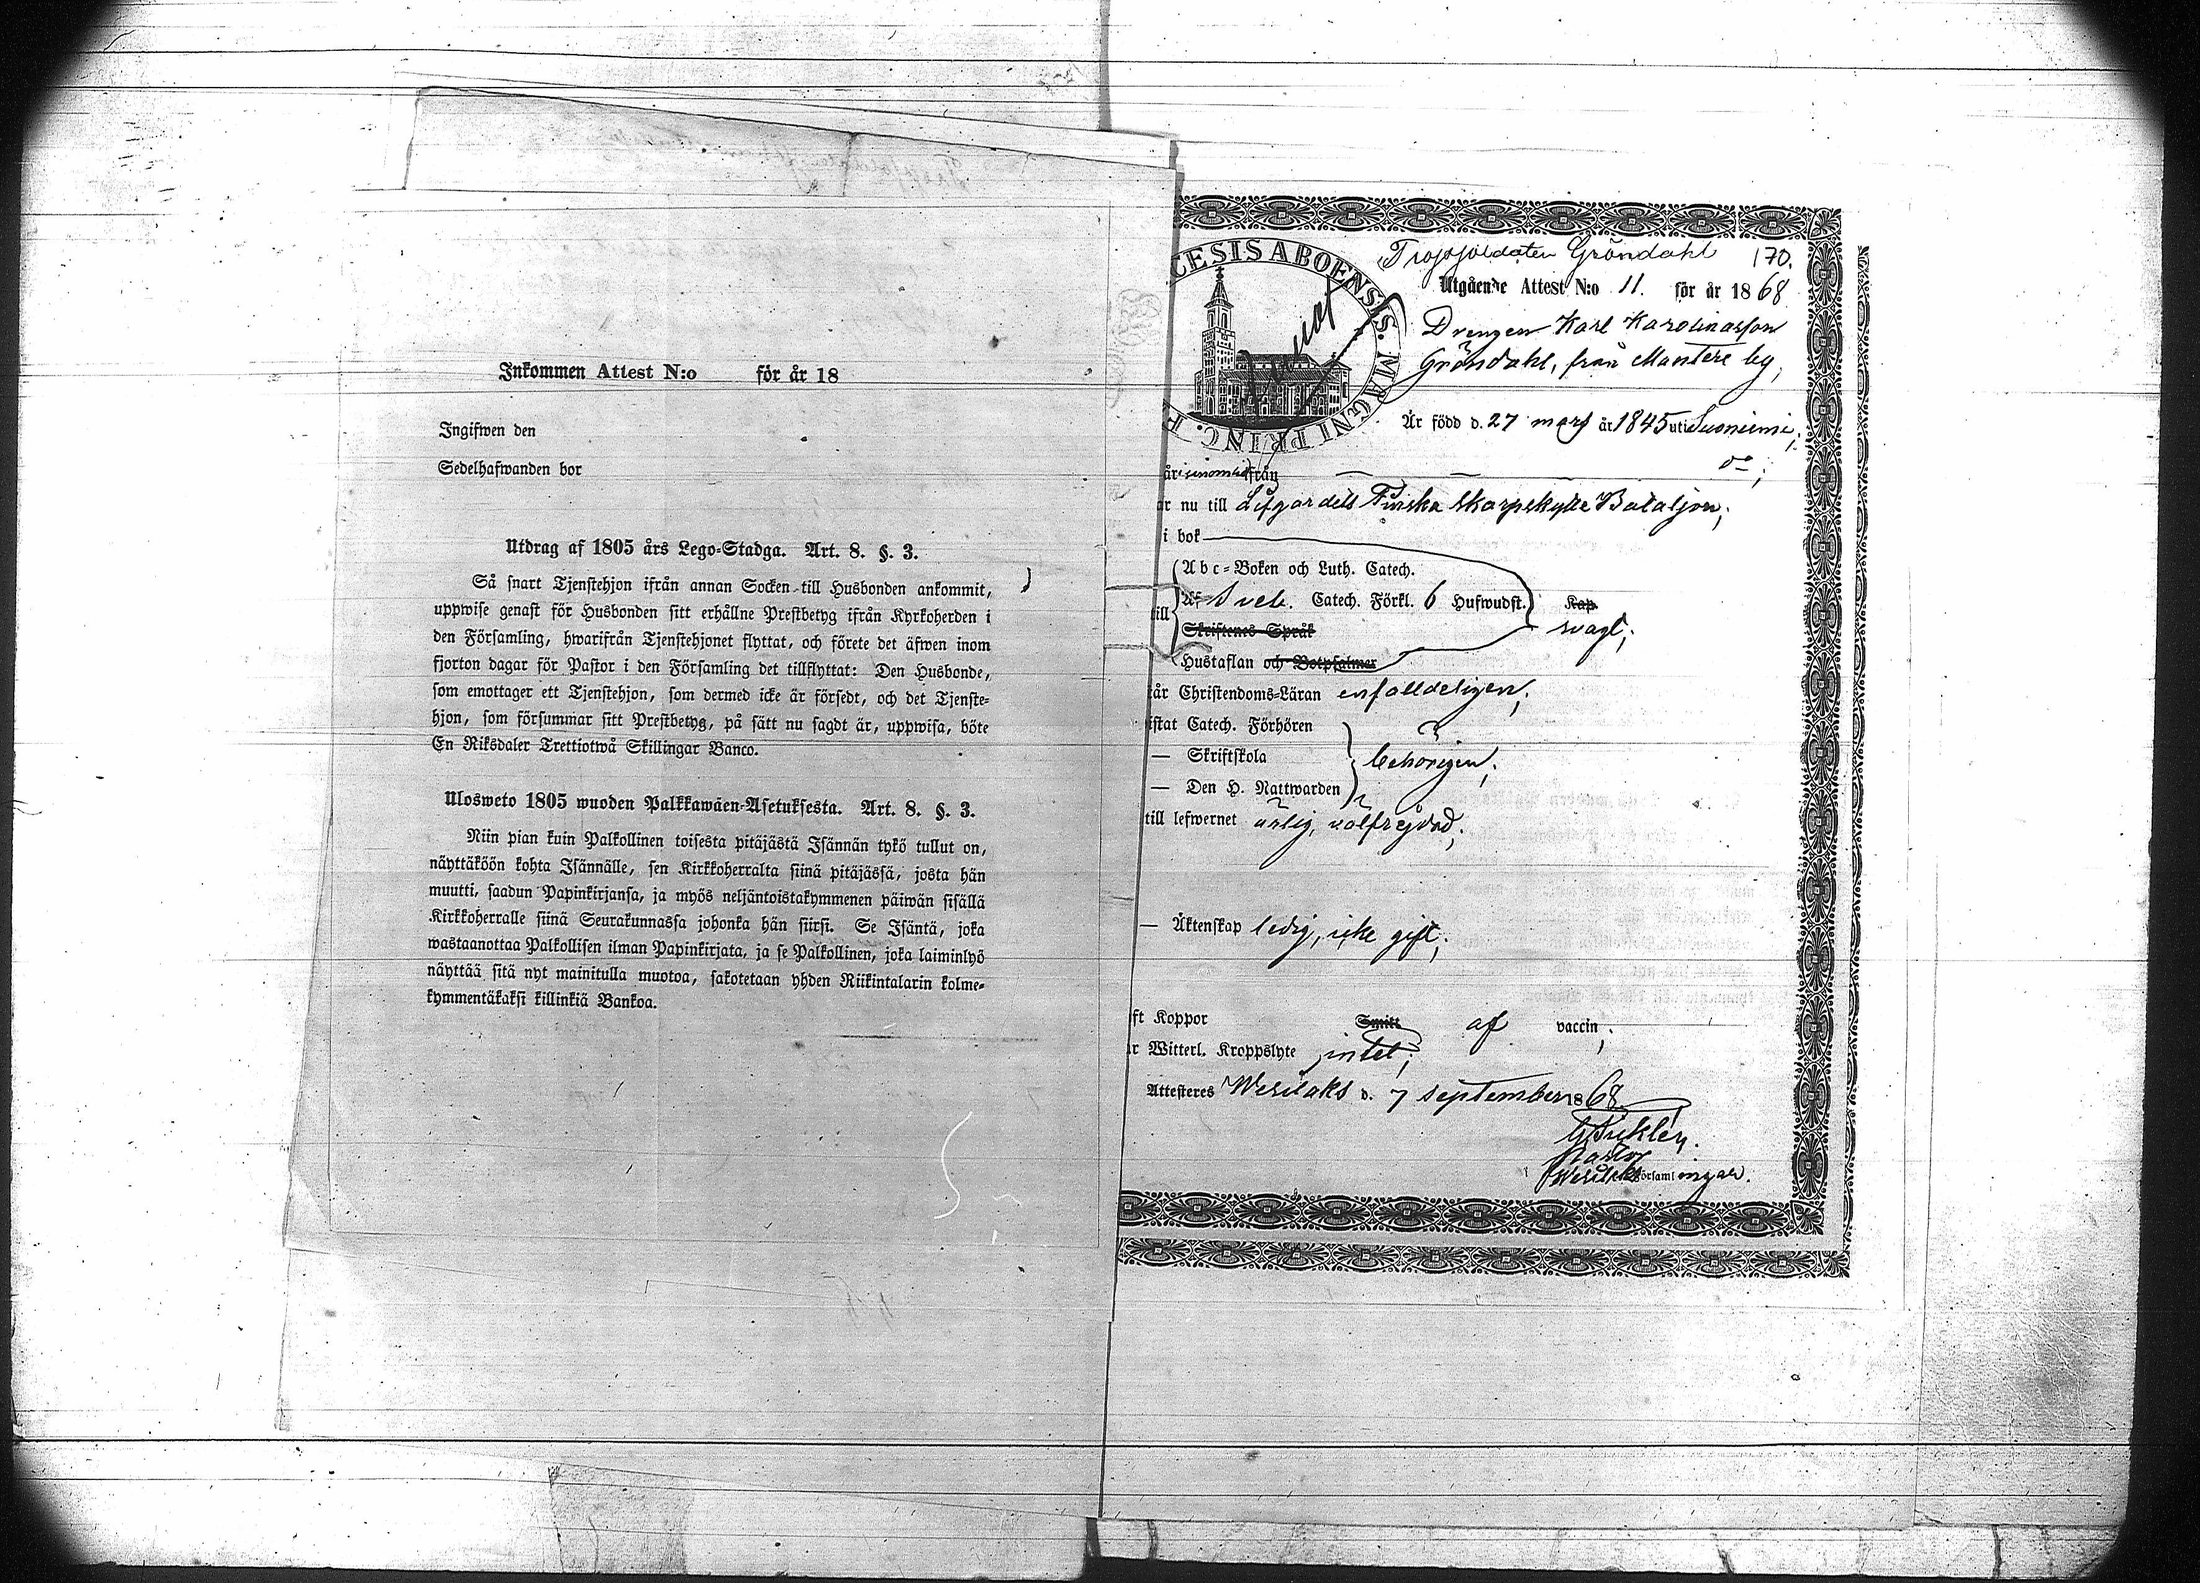 Inkommen Attest N:o för år 18
Ingifwen den
Sedelhafwanden bor
Utdrag af 1805 års Lego-Stadga. Art. 8. §. 3.
Så snart Tjenstehjon ifrån annan Socken till Husbonden ankommit,
uppwise genast för Husbonden sitt erhållne Prestbetyg ifrån Kyrkoherden i
den Församling, hwarifrån Tjenstehjonet flyttat, och förete det äfwen inom
fjorton dagar för Pastor i den Församling det tillflyttat: Den Husbonde,
som emottager ett Tjenstehjon, som dermed icke är försedt, och det Tjenste-
hjon, som försummar sitt Prestbetyg, på sätt nu sagdt är, uppwisa, böte
En Riksdaler Trettiotwå Skillingar Banco.
Ulosweto 1805 wuoden Palkkawäen-Asetuksesta. Art. 8. §. 3.
Niin pian kuin Palkollinen toisesta pitäjästä Isännän tykö tullut on,
näyttäköön kohta Isännälle, sen Kirkkoherralta siinä pitäjässä, josta hän
muutti, saadun Papinkirjansa, ja myös neljäntoistakymmenen päiwän sisällä
Kirkkoherralle siinä Seurakunnassa johonka hän siirsi. Se Isäntä, joka
wastaanottaa Palkollisen ilman Papinkirjata, ja se Palkollinen, joka laiminlyö
näyttää sitä nyt mainitulla muotoa, sakotetaan yhden Riikintalarin kolme-
kymmentäkaksi killinkiä Bankoa.
CESIS ABOENSIS. MAGNI PRINC. F
Trossoldaten Gröndahl 170.
Utgående Attest N:o 11. för år 1868
Drengen Karl Karolinasson
Gröndahl, från Mantere by,
Är född d. 27 mars år 1845 uti Suoniemi;
från
r nu till Lifgardets Finska Skarpskytte Bataljon;
i bok
Abc-Boken och Luth. Catech.
Af Sveb. Catech. Förkl. 6 Hufwudst. Kap.
till Skriftenes Språk svagt;
Hustaflan och Botpsalmer
år Christendoms-Läran enfalldeligen;
istat Catech. Förhören
— Skriftskola behörigen;
— Den H. Nattwarden
till lefwernet ärlig, välfrejdad;
— Äktenskap ledig, icke gift;
ft Koppor Smitt af vaccin;
r Witterl. Kroppslyte intet;
Attesteres Wesilaks d. 7 september 1868
Pastor
Wesilaks Församlingar.